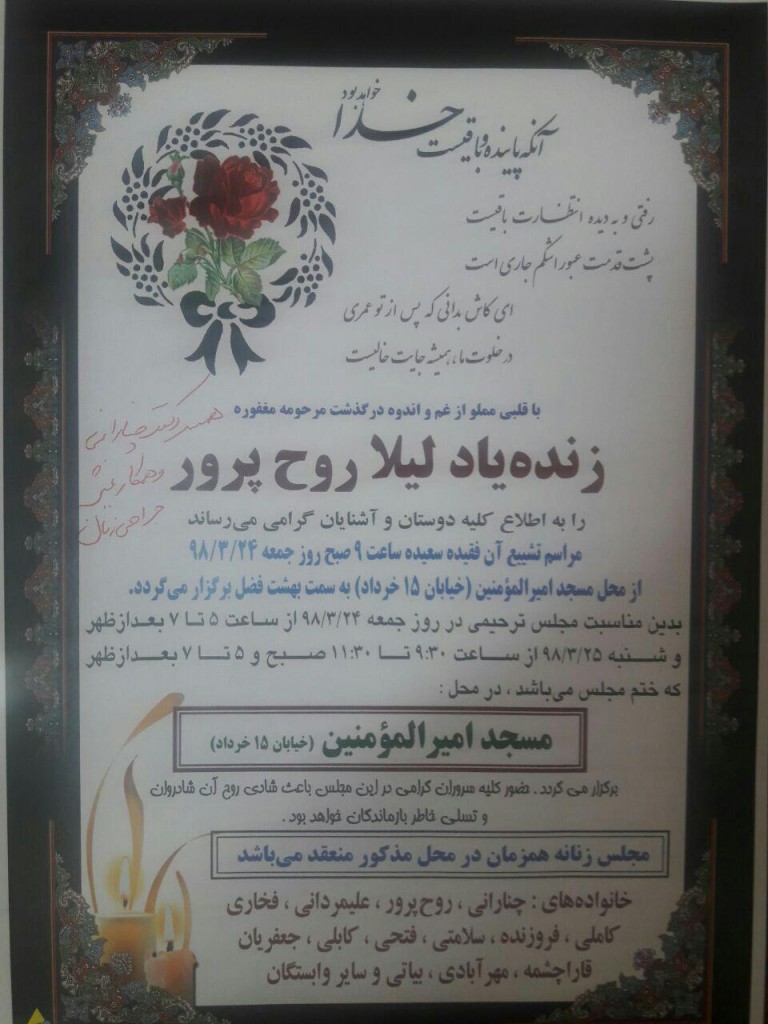 آنکه پاینده و باقیست خدا خواهد بود
رفتی و به دیده انتظارت باقیست
پشت قدمت عبور اشکم جاری است
ای کاش بدانی که پس از تو عمری
در خلوت ما، همیشه جایت خالیست
با قلبی مملو از غم و اندوه درگذشت مرحومه مغفوره
زنده‌یاد لیلا روح پرور
همسر دکتر چنارانی
و همکار بخش
جراحی زنان
را به اطلاع کلیه دوستان و آشنایان گرامی می‌رساند
مراسم تشییع آن فقیده سعیده ساعت ۹ صبح روز جمعه ۹۸/۳/۲۴
از محل مسجد امیرالمؤمنین (خیابان ۱۵ خرداد) به سمت بهشت فضل برگزار می‌گردد.
بدین مناسبت مجلس ترحیمی در روز جمعه ۹۸/۳/۲۴ از ساعت ۵ تا ۷ بعدازظهر
و شنبه ۹۸/۳/۲۵ از ساعت ۹:۳۰ تا ۱۱:۳۰ صبح و ۵ تا ۷ بعدازظهر
که ختم مجلس می‌باشد ، در محل :
مسجد امیرالمؤمنین (خیابان ۱۵ خرداد)
برگزار می گردد . حضور کلیه سروران گرامی در این مجلس باعث شادی روح آن شادروان
و تسلی خاطر بازماندگان خواهد بود .
مجلس زنانه همزمان در محل مذکور منعقد می‌باشد
خانواده‌های : چنارانی ، روح‌پرور ، علیمردانی ، فخاری
کاملی ، فروزنده ، سلامتی ، فتحی ، کابلی ، جعفریان
قاراچشمه ، مهرآبادی ، بیاتی و سایر وابستگان